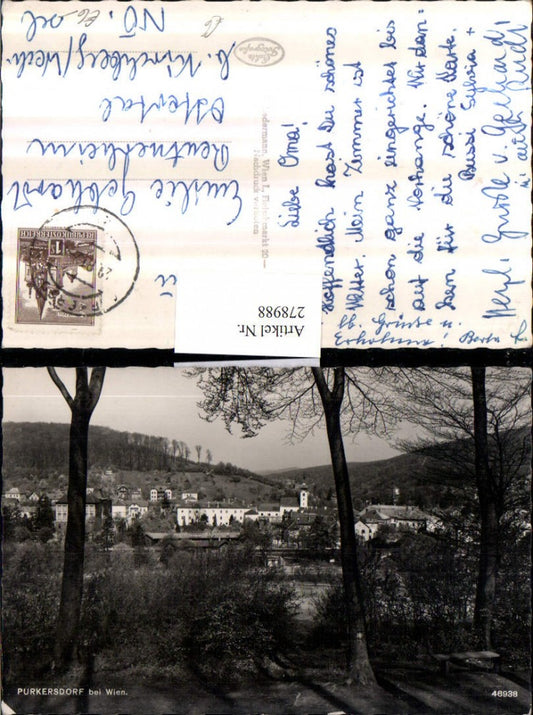 Liebe Oma!
Hoffendlich hast Du schönes
Wetter. Mein Zimmer ist
schon ganz eingerichtet bis
auf die Vorhänge. Wir dan-
ken für die schöne Karte.
Bussi Sylvia +
Herzl. Grüße v. Gebhardi
u. auch Rudi
lb. Grüsse u.
Erholung! Berta
Emilie Gebhardt
Rentnerheim
Ottertal
b. Kirchberg/Wech.
NÖ.
Echte
Fotografie
REPUBLIK ÖSTERREICH
1
Artikel Nr.
278988
PURKERSDORF bei Wien.
46938